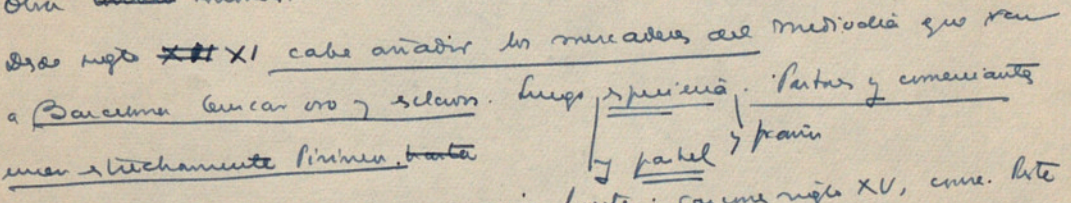 Desde siglo XI cabe añadir los mercaderes del Mediodía que van
a Barcelona buscar oro y esclavos. Luego especiería. Pastores y comerciantes
unen estrechamente Pirineo.
y pastel y paños
siglo XV,